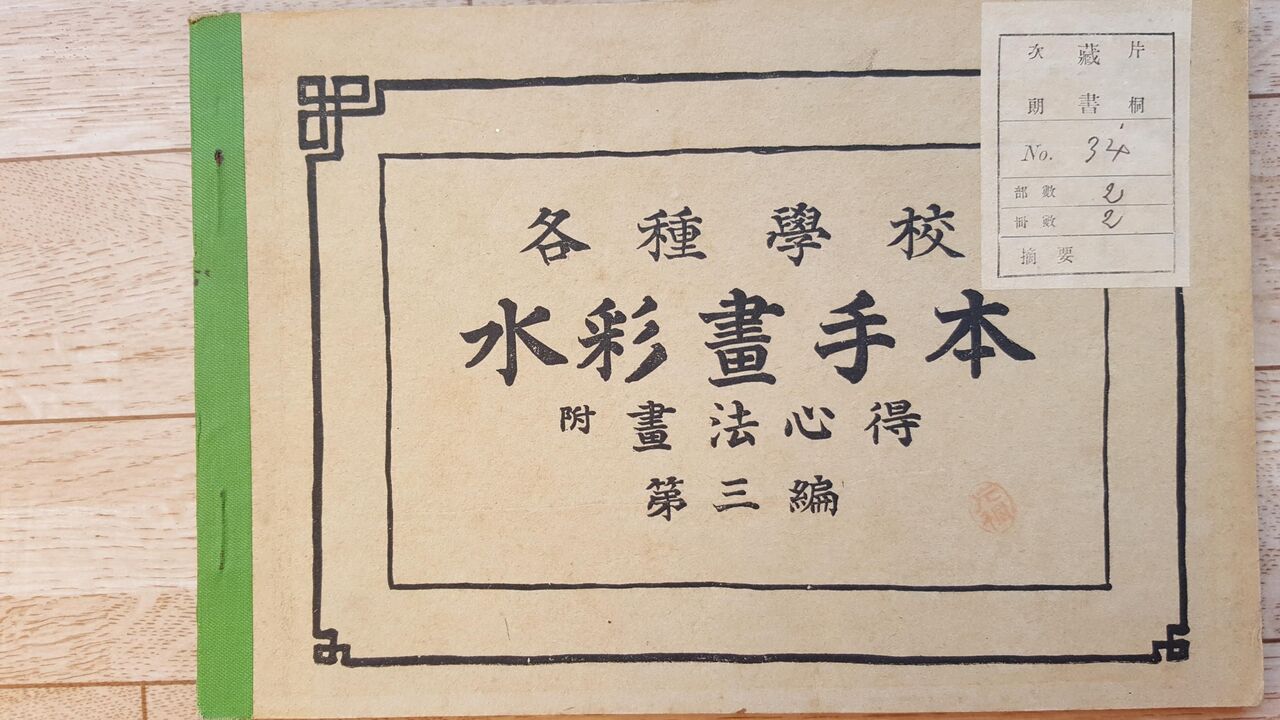 各種學校
水彩畫手本
附 畫法心得
第三編
片桐
藏書
次朗
No. 34
部數 2
冊數 2
摘要